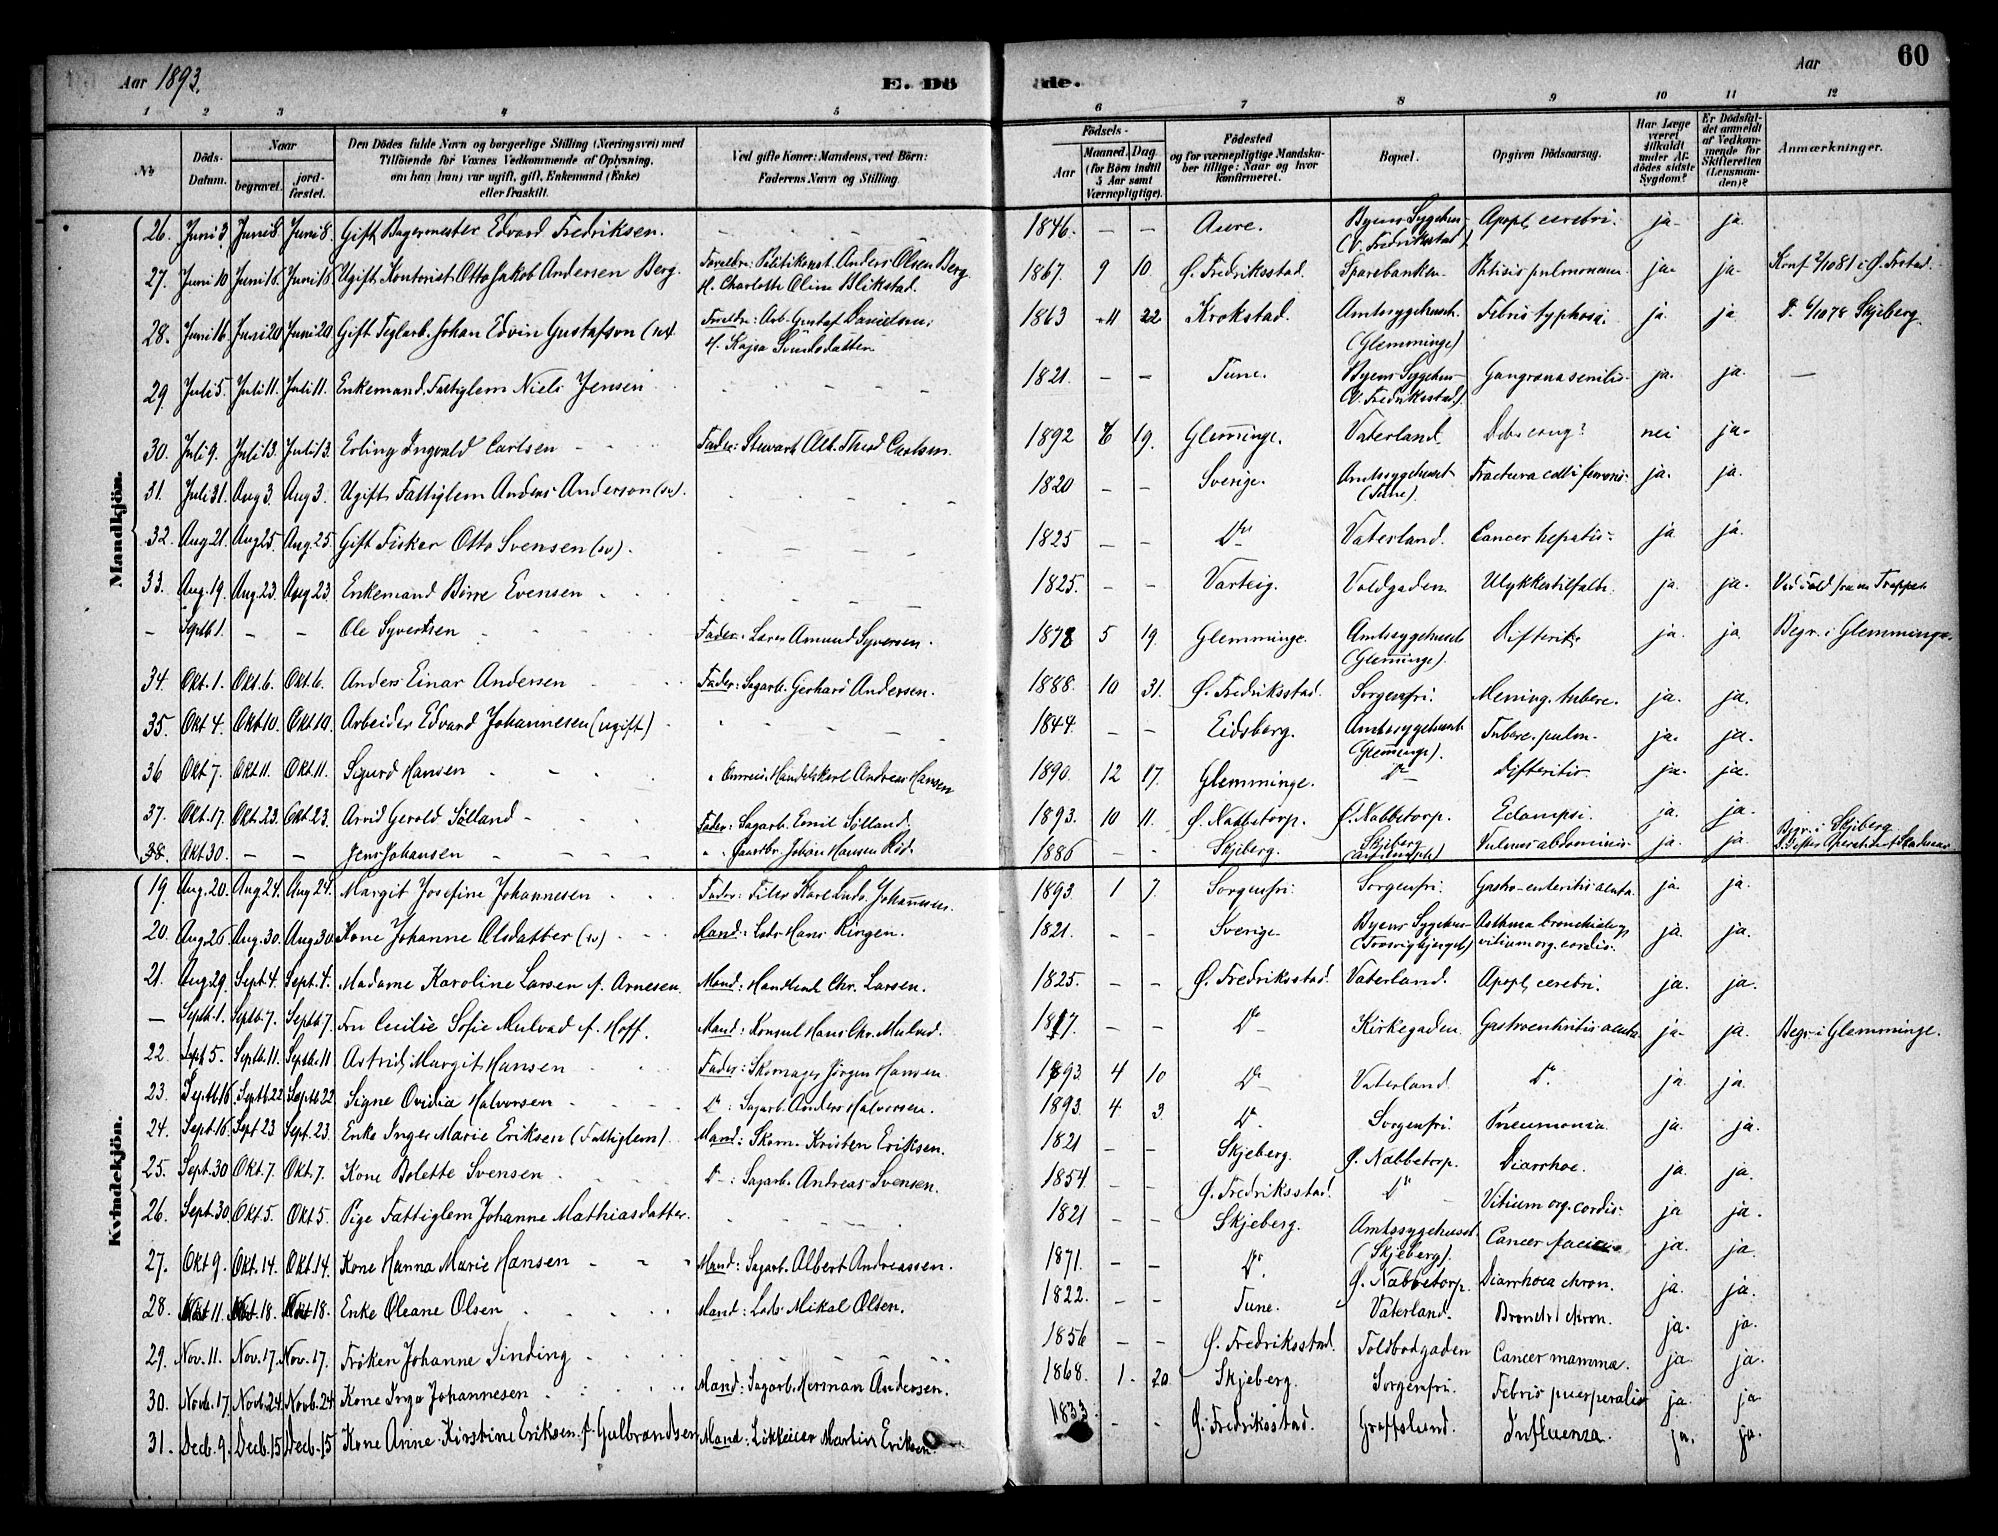 Aar 1893. E. Dö de. Aar 60
1 2 3 4 5 6 7 8 9 10 11 12
No Döds-Datum. Naar begravet. jordfæstet. Den Dödes fulde Navn og borgerlige Stilling (Næringsvei) med Tilföiende for Voxnes Vedkommende af Oplysning, om han (hun) var ugift, gift, Enkemand (Enke) eller fraskilt. Ved gifte Koner: Mandens, ved Börn: Faderens Navn og Stilling. Födsels- Aar Maaned. Dag (for Börn indtil 5 Aar samt Værnepligtige). Födested og for værnepligtige Mandskaber tillige: Naar og hvor konfirmeret. Bopæl. Opgiven Dödsaarsag. Har Læge været tilkaldt under Afdödes sidste Sygdom? Er Dödsfaldet anmeldt af Vedkommende for Skifteretten (Lensmanden)? Anmærkninger.
Mandkjön.
26. Juni 3 Juni 8 Juni 8. Gift Bagermester Edvard Fredriksen. 1846. — — Aure. Byens Sygehus (V. Fredriksstad) Apopl. cerebri. ja. ja.
27. Juni 10 Juni 16 Juni 16 Ugift Kontorist Otto Jakob Andersen Berg. Forældre: Politikonst. Anders Olsen Berg H. Charlotte Oline Blikstad. 1867. 9 10. Ø. Fredriksstad. Sparebanken Phtisis pulmonum ja. ja. Konf. 2/10 81 i Ø. Frstad.
28. Juni 16 Juni 20 Juni 20 Gift Teglarb. Johan Edvin Gustafson Foreldre: Arb. Gustaf Davidson, H. Kajsa Svensdatter 1863 11 22 Krokstad. Amtssygehuset (Glemminge) Febris typhosa. ja. ja. D. 6/10 78 Skjeberg.
29. Juli 5. Juli 11. Juli 11. Enkemand. Fattiglem Niels Jensen 1821. — — Tune. Byens Sygehus (V. Fredriksstad) Gangræna senilis. ja. ja. —
30. Juli 9. Juli 13. Juli 13. Erling Ingvald Carlsen Fader: Stuvart Alb. Theod. Carlsen. 1892 6 19. Glemminge. Vaterland. nei ja.
31. Juli 31. Aug 3. Aug 3. Ugift Fattiglem Anders Anderson (sv). 1820 — — Sverige. Amtssygehuset (Tune) Fractura colli femoris. ja. ja.
32. Aug 21. Aug 25. Aug. 25. Gift Fisker Otto Svensen (sv). 1825 — — Do Vaterland. Cancer hepatis. ja ja.
33. Aug. 19. Aug. 23. Aug 23. Enkemand Börre Evensen 1825. — — Varteig. Voldgaden. Ulykkestilfælde. ja. ja. Ved Fald fra en Trappe.
— Septb. 1. — — Ole Syvertsen Fader: Amund Syversen. 1878 5 19. Glemminge. Amtssygehuset (Glemminge). Difterit. ja. ja Begr. i Glemminge.
34. Okt. 1. Okt. 6. Okt. 6. Anders Einar Andersen Fader: Sagarb. Gerhard Andersen. 1888. 10 31. Ø. Fredriksstad. Sorgenfri. Mening. tuberc. ja. ja.
35. Okt 4. Okt 10. Okt 10. Arbeider Edvard Johannesen (ugift) 1844. — — Eidsberg. Amtssygehuset (Glemminge). Tuberc. pulm. ja. ja.
36 Okt 7. Okt 11. Okt. 11. Sigurd Hansen " Handelskarl Andreas Hansen 1890. 12 17. Glemminge. Do Difteritis. ja. ja.
37. Okt. 17. Okt. 23. Okt. 23. Arvid Gerold Sölland Fader: Sagarb. Emil Sölland. 1893. 10 11. Ø. Nabbetorp. Ø. Nabbetorp. Eclampsi. ja. ja.
38. Okt 30. — — Jens Johansen " Gaardbr. Johan Hansen Röd. 1886 — — Skjeberg. Skjeberg Vulnus abdominis. ja. ja. Begr. i Skjeberg.
Kvindekjön.
19. Aug. 20. Aug 24. Aug 24. Margit Josefine Johannesen Fader: Filer Karl Ludv. Johannesen. 1893. 1 7. Sorgenfri. Sorgenfri. Gastro-enteritis acuta. ja. ja.
20. Aug 26. Aug. 30. Aug 30. Kone Johanne Olsdatter (sv) Mand: Lods Hans Ringen. 1821. — — Sverige. Byens Sygehus Asthma bronchiale og vitium org. cordis. ja. ja.
21. Aug 29 Sept. 4. Sept. 4. Madame Karoline Larsen f. Arnesen. Mand: Handlende Chr. Larsen. 1825. — — Ø. Fredriksstad. Vaterland. Apopl. cerebri. ja. ja.
— Septb. 1. Septb. 7. Septb. 7. Fru Cecilie Sofie Mulvad f. Hoff. Mand: Konsul Hans Chr. Mulvad. 1817. — — Do Kirkegaden. Gastroenteritis acuta ja. ja. Begr. i Glemminge.
22. Sept 5. Septb. 11. Septb. 11 Astrid Margit Hansen Fader: Skomager Jörgen Hansen 1893. 4 10 Do Vaterland. Do. ja. ja.
23. Septb. 16. Septb 22. Septb 22 Signe Ovidia Halvorsen Do: Sagarb. Anders Halvorsen. 1893. 4 3 Do. Sorgenfri. Pneumonia. ja. ja.
24. Septb. 16. Sept 23 Sept. 23. Enke Inger Marie Eriksen (Fattiglem). Mand: Skom. Kristen Eriksen. 1821 — — Skjeberg. Ø. Nabbetorp. Diarrhoe. ja. ja.
25. Sept. 30 Okt. 7. Okt. 7. Kone Bolette Svensen Do: Sagarb. Andreas Svensen. 1854. — — Ø. Fredriksstad. Do Vitium org. cordis. ja ja.
26. Sept. 30. Okt 5. Okt 5. Pige Fattiglem Johanne Mathiasdatter. 1821 — — Skjeberg. Amtssygehuset (Skjeberg). Cancer faciei. ja. ja.
27. Okt 9. Okt. 14. Okt. 14. Kone Hanna Marie Hansen Mand: Sagarb. Albert Andreassen. 1871. — — Do. Ø. Nabbetorp. Diarrhoea chron. ja. ja.
28. Nov 11. Nov. 18. Nov. 18. Enke Oleane Olsen Mand: Lods Mikal Olsen. 1822. — — Tune. Vaterland. Bronch. chron. ja. ja.
29. Nov. 11. Nov. 17. Nov. 17. Fröken Johanne Sinding 1856 — — Ø. Fredriksstad. Toldbodgaden Cancer mamma. ja. ja.
30. Novb. 17. Novb. 24. Novb. 24 Kone Inga Johannesen Mand: Sagarb. Herman Andersen. 1868. 1. 20. Skjeberg. Sorgenfri. Febris puerperalis ja. ja
31. Decb. 9. Decb. 15. Decb. 15 Kone Anne Kirstine Eriksen f. Gulbrandsen Mand: Martin Eriksen. 1833. — — Ø. Fredriksstad. Influenza. ja. ja.